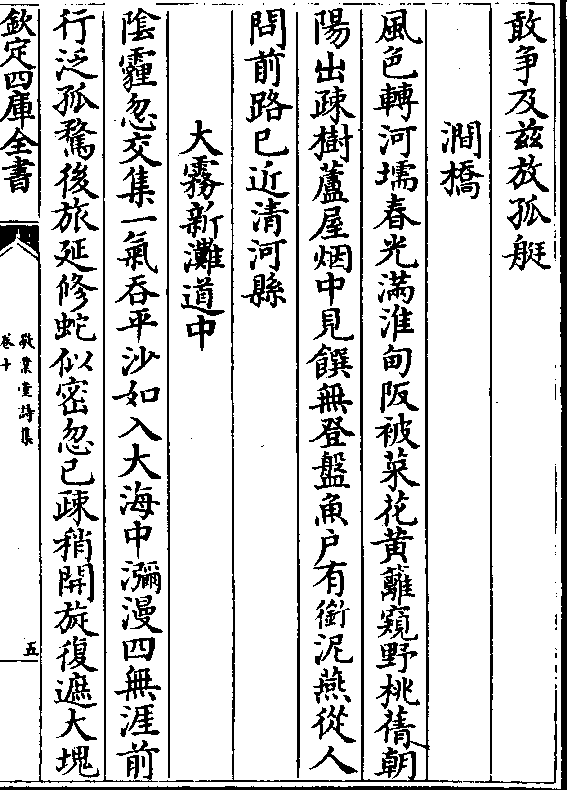 敢争及兹放孤艇
澗橋
風色轉河壖春光滿淮甸阪被菜花黄籬窺野桃蒨朝
陽出疎樹蘆屋烟中見饌無登盤魚户有銜泥燕從人
問前路已近清河縣
大霧新灘道中
陰霾忽交集一氣吞平沙如入大海中瀰漫四無涯前
行泛孤鶩後旅延修蛇似密忽已疎稍開旋復遮大塊
欽定四庫全書
敬業堂詩集
卷十
五